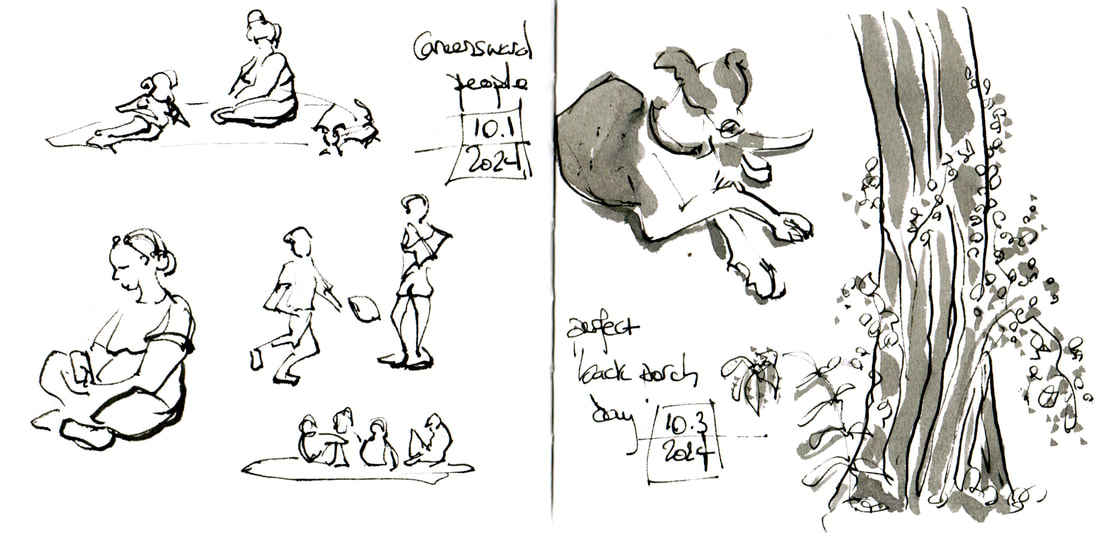 Greensward
people
10.1
2024
perfect
back porch
day
10.3
2024